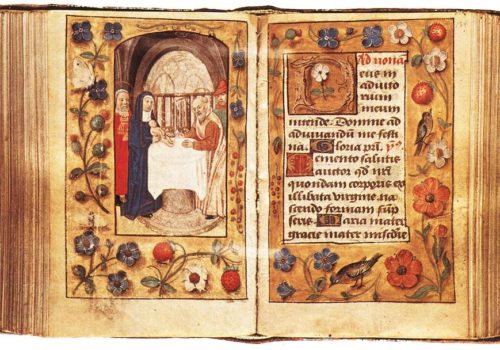 Ad nonã
Deus in
adiuto
rium
meum
intende. Domine ad
adiuuandũ me festi
na. Gloria pri.
Memento salutis
auctor qd nri
quondam corporis ex
illibata virgine na
scendo formam sump
seris. Maria mater
gracie mater miscdie